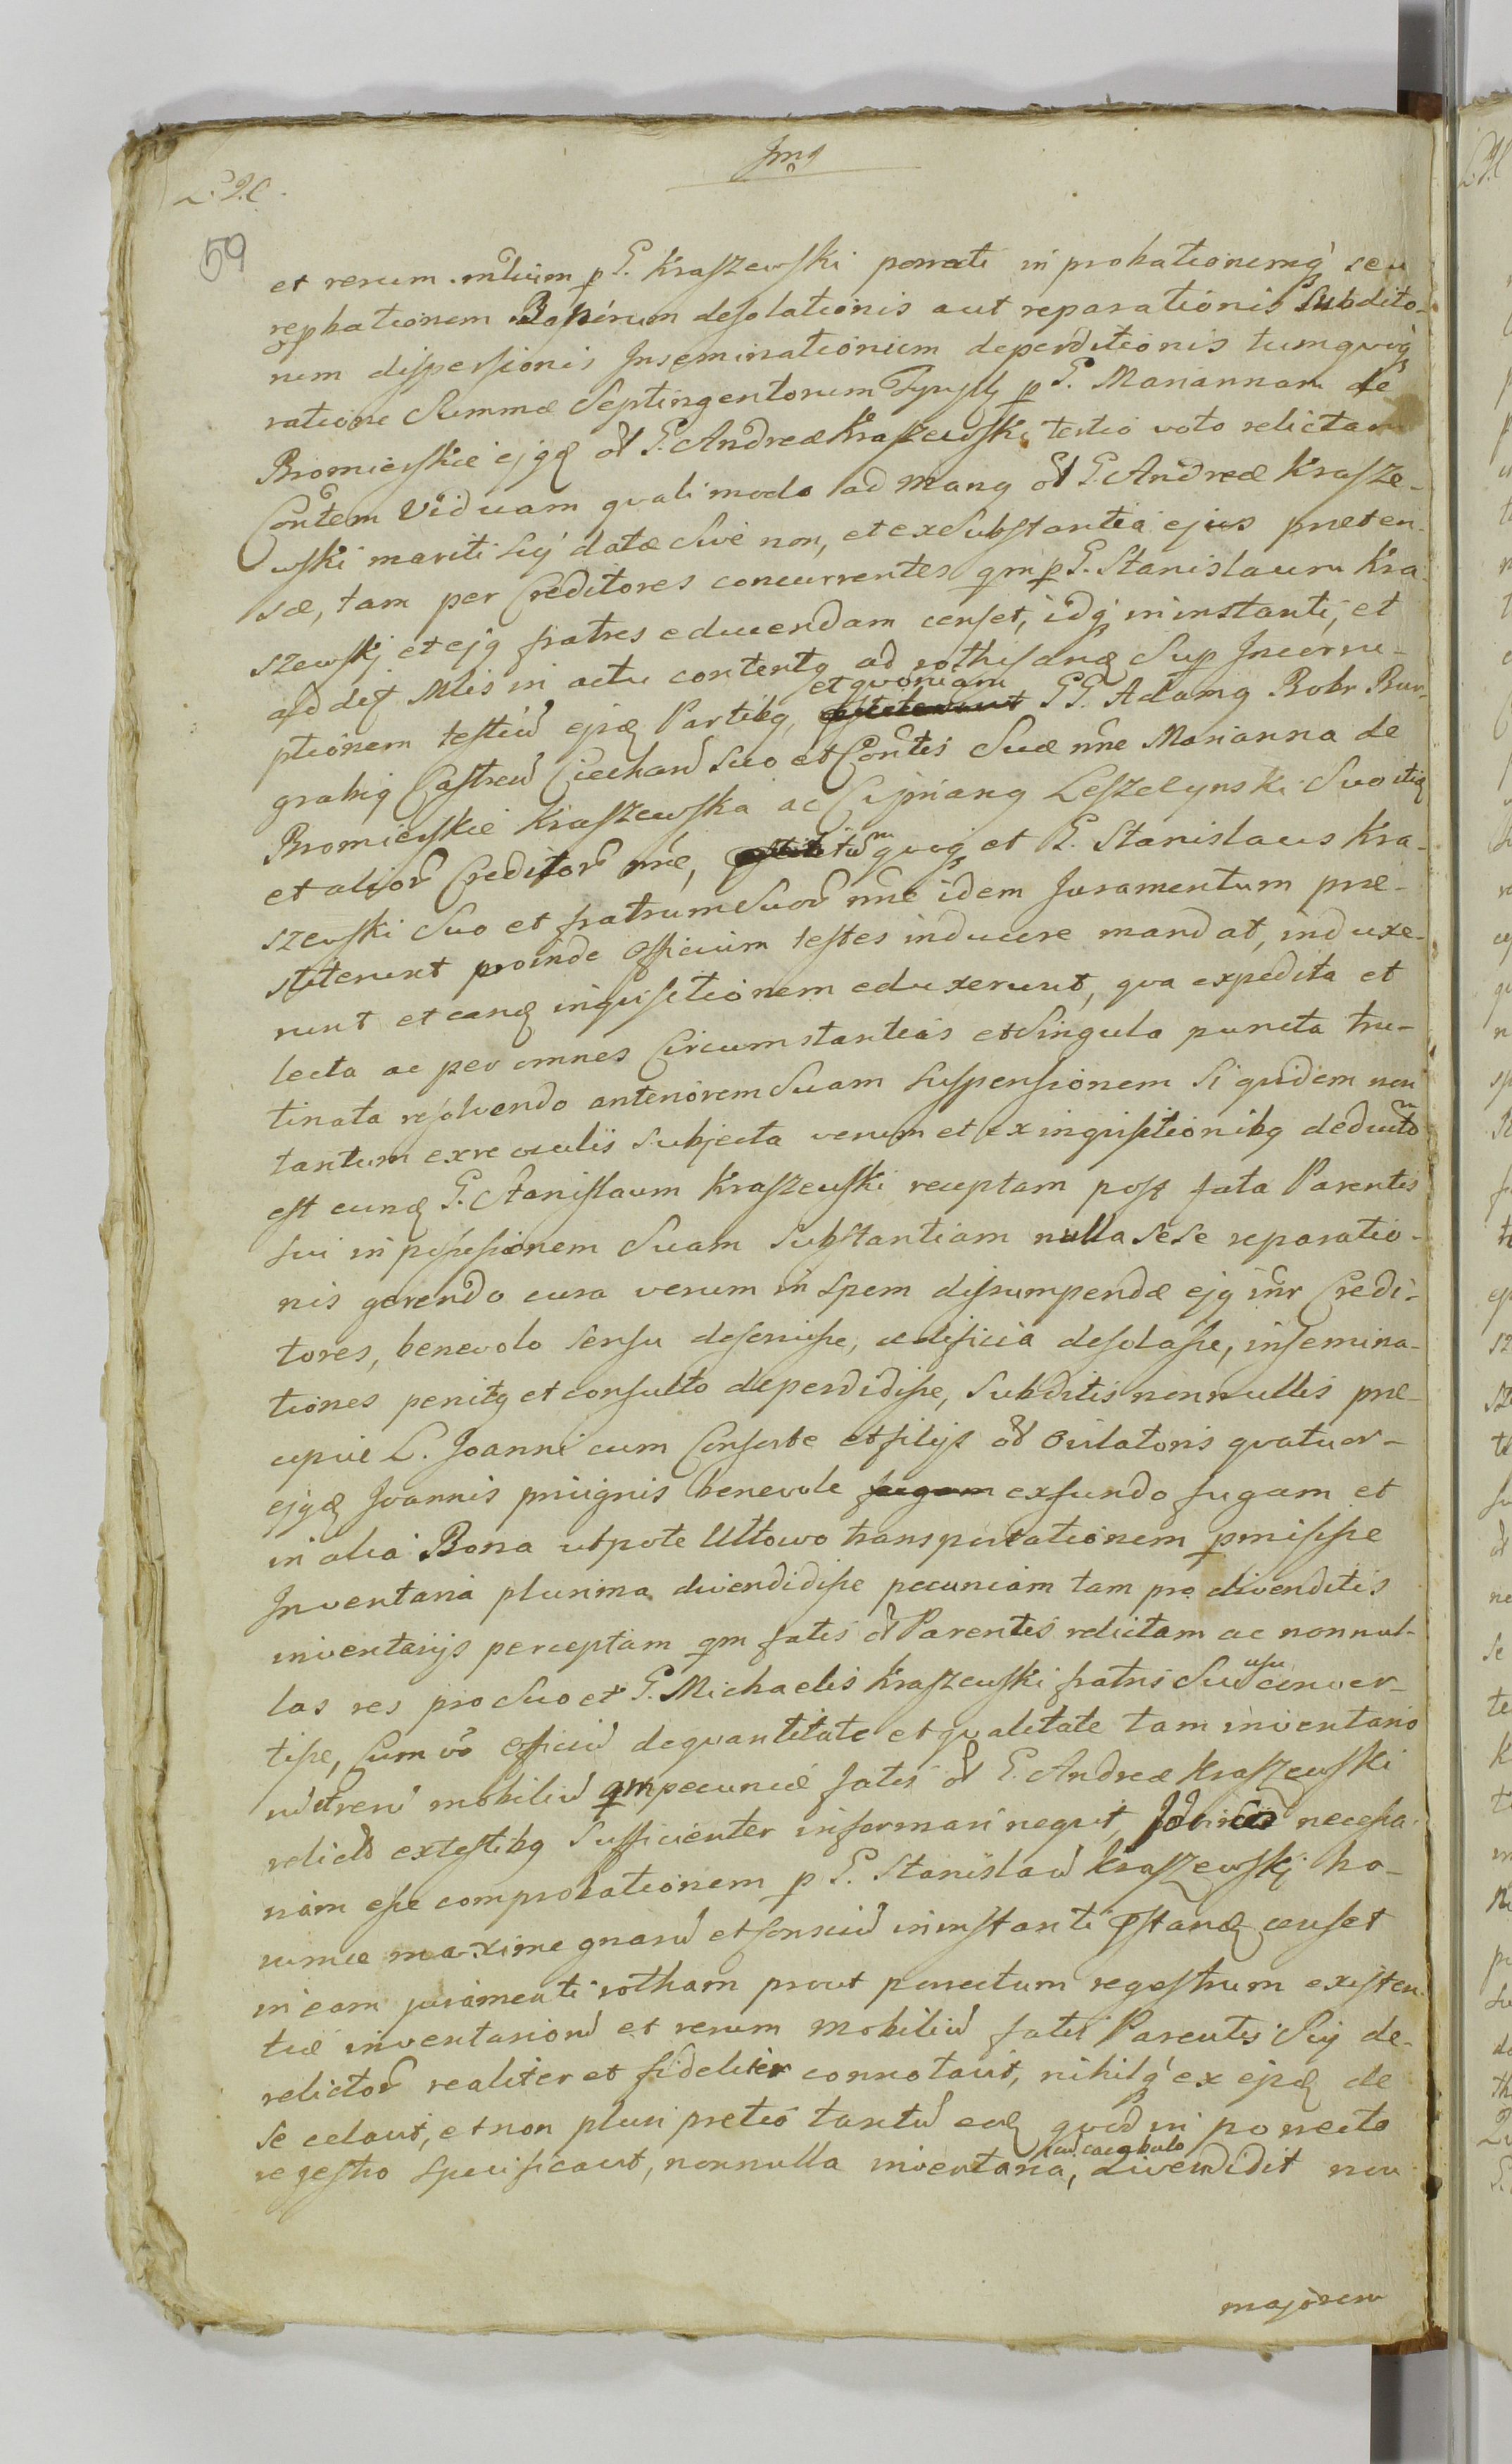 Jms
59
et rerum mlium p G. Kraszewski porrecti in probationemq seu
reprobationem Bonorum desolationis aut reparationis Subdito-
rum dispersionis Inseminationum deperditionis tumquoq
ratione Summæ Septingentorum Tynf p G. Mariannam de
Bromierskie ejqd od G. Andreæ Kraszewski tertio voto relictam
Contem Viduam quali modo ad manq od G. Andreæ Krasze-
wski mariti Sui datæ Sive non, et ex Substantia ejus præten-
sæ, tam per Creditores concurrentes qm p G. Stanislaum Kra-
szewski et ejq fratres educendam censet, idq in instanti, et
ad def Mlis in actu contentq ad rothisandq Sup Incorru-
ptionem testiu ejq Partibq, et quoniam GG. Adamq Bobr Bur-
grabiq Castren Ciechan Suo et Contis Suæ nne Marianna de
Bromierskie Kraszewska ac Cipriang Leszczynski Suo itiq
et alior Creditor nne, tum quoq et G. Stanislaus Kra-
szewski Suo et fratrum Suor nne idem Juramentum præ-
stiterunt proinde Officium testes inducere mandat, induxe-
runt et eanq inquisitionem eduxerunt, qva expedita et
lecta ac per omnes Circumstantias et Singula puncta tru-
tinata resolvendo anteriorem Suam Suspensionem Siquidem non
tantum ex re oculis Subjecta verum et ex inquisitionibq deductum
est eunq G. Stanislaum Kraszewski receptam post fata Parentis
sui in possessionem Suam Substantiam nulla sese reparatio-
nis gerendo cura verum in Spem disrumpendæ ejq inr Credi-
tores, benevolo sensu deseruisse, ædificia desolasse, insemina-
tiones penitq et consulto deperdidisse, Subditis nonnullis præ-
cipue L. Joanni cum Consorte et filijs od ovilatoris quatuor-
ejqd Joannis privignis benevole fugam ex fundo fugam et
in alia Bona utpote Ułtowo transportationem pmisisse
Inventaria plurima divendidisse pecuniam tam pro divenditis
inventarijs perceptam qm fatis od Parentis relictam ac nonnul-
las res pro Suo et G. Michaelis Kraszewski fratris Sui usu conver-
tisse, Cum vo Officiu de quantitate et qualitate tam inventario
ru et reru mobiliu qm pecuniæ fatis od G. Andreæ Kraszewski
relict ex testibq Sufficienter informari nequit, Idcirco necessa-
riam esse comprobationem p G. Stanislau Kraszewski ho-
rumce maxime gnaru et consciu in instanti pstanq censet
in eam juramenti rotham prout porrectum regestrum existen-
tiæ inventarioru et rerum mobiliu fatis Parentis Sui de-
relictor realiter et fideliter connotavit, nihilq ex ejsq de
se celavit, et non pluri pretio tantu eaq quod in porrecto
regestro specificavit, nonnulla inventaria, divendidit non
majorem